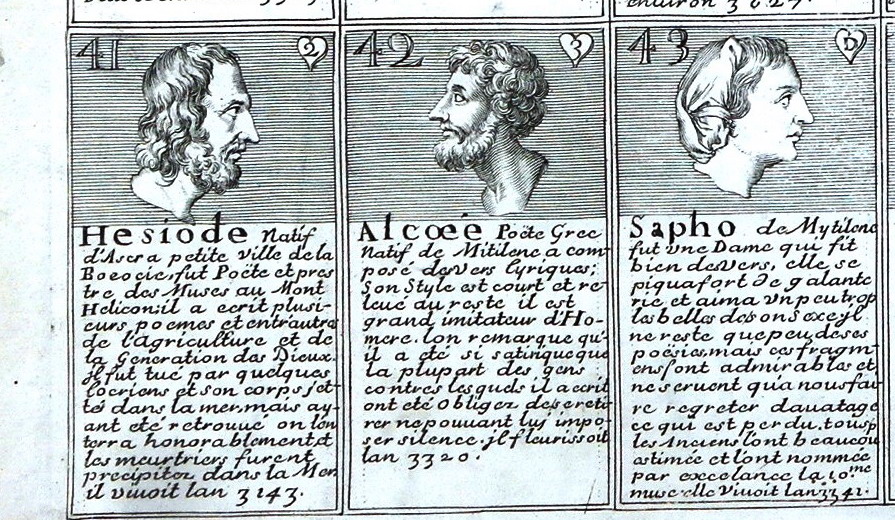 environ 3627.
41
2
Hesiode Natif
d'Ascra petite ville de la
Boeocie, fut Poëte et pres
tre des Muses au Mont
Helicon: il a ecrit plusi-
eurs poemes et entr'autre
de l'agriculture et de
la Generation des Dieux.
il fut tué par quelques
locriens et son corps jet-
té dans la mer, mais ay-
ant eté retrouué on l'en
terra honorablement, et
les meurtriers furent
precipitez dans la Mer.
il viuoit lan 3143.
42
3
Alcœé Poëte Grec
Natif de Mitilene a com-
posé des vers Lyriques;
Son Style est court et re-
leué au reste il est
grand imitateur d'Ho-
mere. lon remarque qu'
il a eté si satirique que
la plupart des gens
contre lesquels il a ecrit
ont eté obligez de s'reti-
rer ne pouuant luy impo-
ser silence. il fleurissoit
lan 3320.
43
D
Sapho de Mytilene
fut vne Dame qui fit
bien des vers, elle se
piqua fort de galante
rie et aima vn peu trop
les belles de son sexe, jl
ne reste que peu de ses
poësies, mais ces fragm-
ens sont admirables et
ne seruent qu'a nous fai
re regreter dauatage
ce qui est perdu. tous
les Anciens l'ont beaucou
estimée et l'ont nommée
par excelance la 10.me
muse elle Viuoit lan 3341.